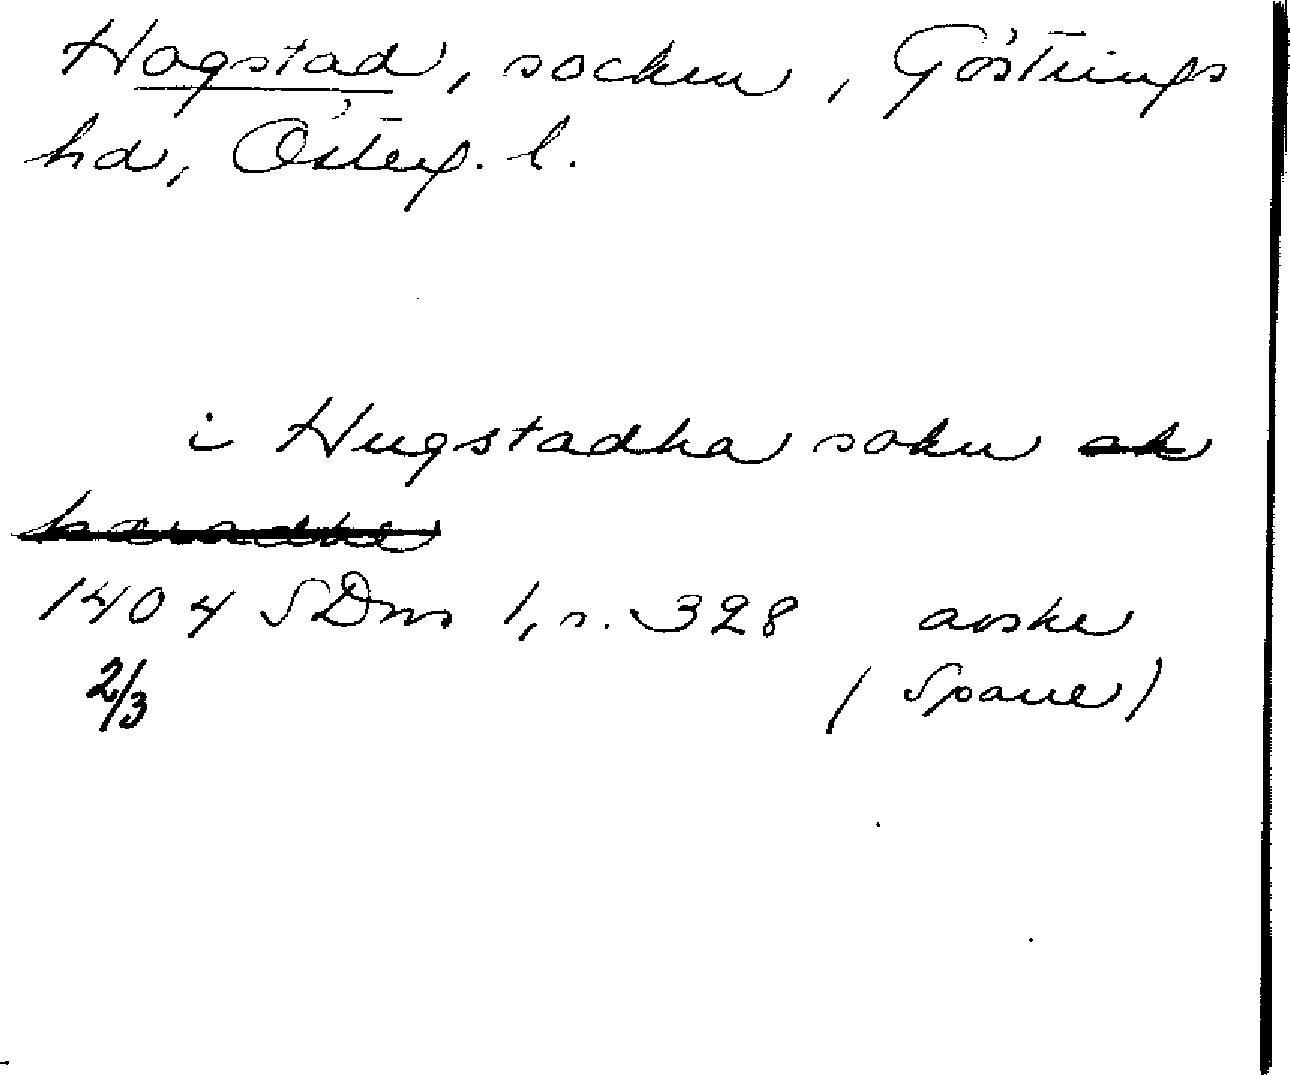 Hogstad, socken, Göstrings
hd, Österg. l.
i Hugstadha sokn ok
hæradhe
1404 SDns 1, s. 328 avskr
2/3 (Spane)